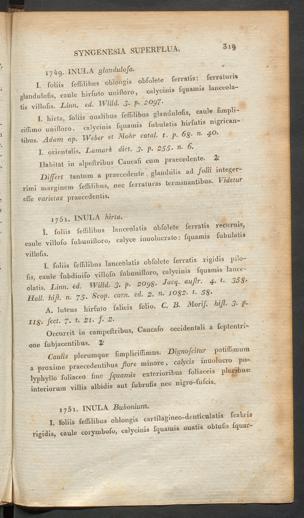 SYNGENESIA SUPERFLUA. 319
1749. INULA glandulosa.
I. foliis sessilibus oblongis obsolete serratis: serraturis
glandulosis, caule hirsuto unifloro, calycinis squamis lanceola-
tis villosis. Linn. ed. Willd. 3. p. 2097.
I. hirta, foliis oualibus sessilibus glandulosis, caule simpli-
cissimo unifloro, calycinis squamis subulatis hirsutis nigrican-
tibus. Adam ap. Weber et Mohr catal. 1. p. 68. n. 40.
I. orientalis. Lamark dict. 3. p. 255. n. 6.
Habitat in alpestribus Caucasi cum praecedente. ♃
Differt tantum a praecedente glandulis ad folii integer-
rimi marginem sessilibus, nec serraturas terminantibus. Videtur
esse varietas praecedentis.
1750. INULA hirta.
I. foliis sessilibus lanceolatis obsolete serratis recuruis,
caule villoso subunifloro, calyce inuolucrato: squamis subulatis
villosis.
I. foliis sessilibus lanceolatis obsolete serratis rigidis pilo-
sis, caule subdiuiso villoso subunifloro, calycinis squamis lance-
olatis. Linn. ed. Willd. 3. p. 2098. Jacq. austr. 4. t. 358.
Hall. hist. n. 75. Scop. carn. ed. 2. n. 1082. t. 58.
A. luteus hirsuto salicis folio. C. B. Moris. hist. 3. p.
118. sect. 7. t. 21. f. 2.
Occurrit in campestribus, Caucaso occidentali a septentri-
one subjacentibus. ♃
Caulis plerumque simplicissimus. Dignoscitur potissimum
a proxime praecedentibus flore minore, calycis inuolucro po-
lyphyllo foliaceo siue squamis exterioribus foliaceis pluribus
interiorum villis albidis aut subrufis nec nigro-fuscis.
1751. INULA Bubonium.
I. foliis sessilibus oblongis cartilagineo-denticulatis scabris
rigidis, caule corymboso, calycinis squamis ouatis obtusis squar-